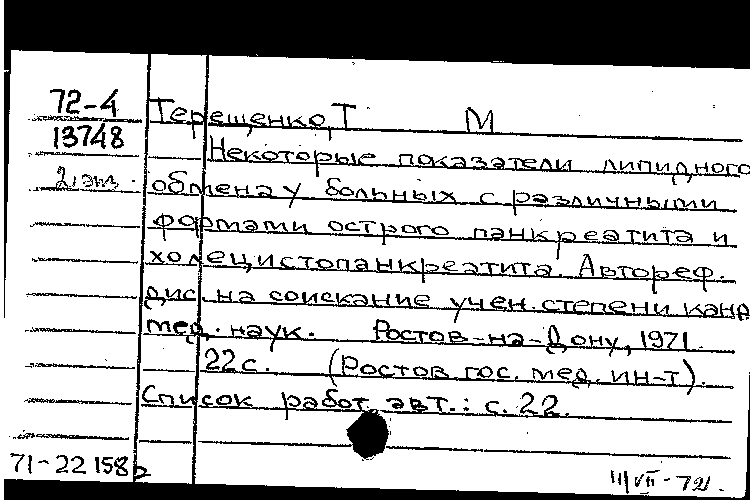 72-4
13748
2 экз.
Терещенко, Т М
Некоторые показатели липидного
обмена у больных с различными
формами острого панкреатита и
холецистопанкреатита. Автореф.
дис. на соискание учен. степени канд
мед. наук. Ростов-на-Дону, 1971.
22 с. (Ростов гос. мед. ин-т).
Список работ авт.: с. 22.
71-22158
III/VII-72г.